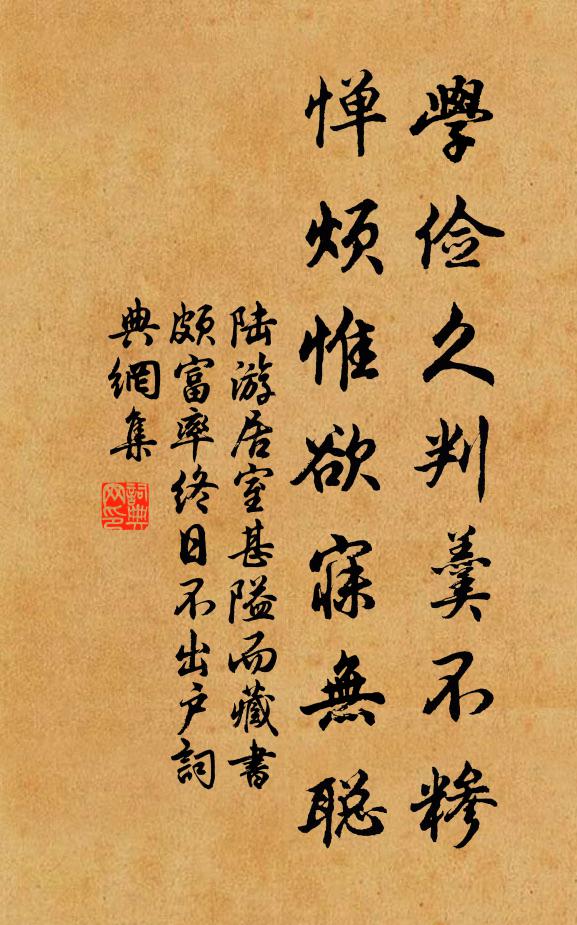 學俭久判羹不糝
惮烦惟欲寐無聪
陆游居室甚隘而藏書
颇富率终日不出户詞
典網集
詞典網印